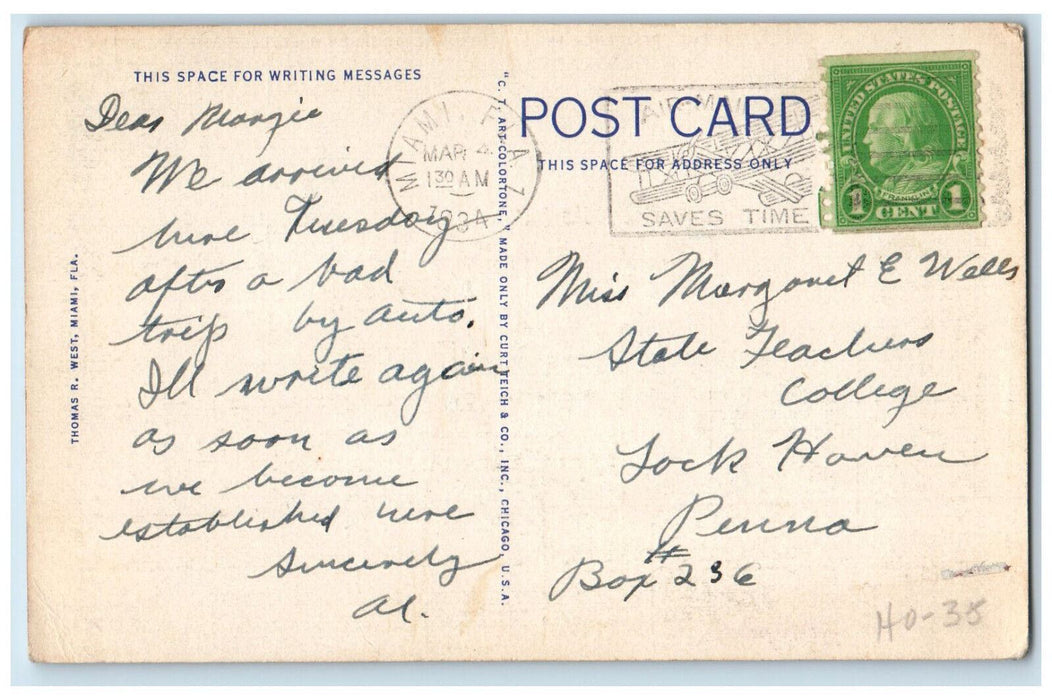 THIS SPACE FOR WRITING MESSAGES
Dear Margie
We arrived
here Tuesday
after a bad
trip by auto.
I'll write again
as soon as
we become
established here
Sincerely
Al.
THOMAS R. WEST, MIAMI, FLA.
"C. T. ART-COLORTONE," MADE ONLY BY CURT TEICH & CO., INC., CHICAGO, U.S.A.
POST CARD
THIS SPACE FOR ADDRESS ONLY
MIAMI, FLA.
MAR 4
1 30 AM
1934
AIR MAIL
SAVES TIME
UNITED STATES POSTAGE
FRANKLIN
1 CENT 1
Miss Margaret E Wells
State Teachers
College
Lock Haven
Penna
Box #236
HO-35